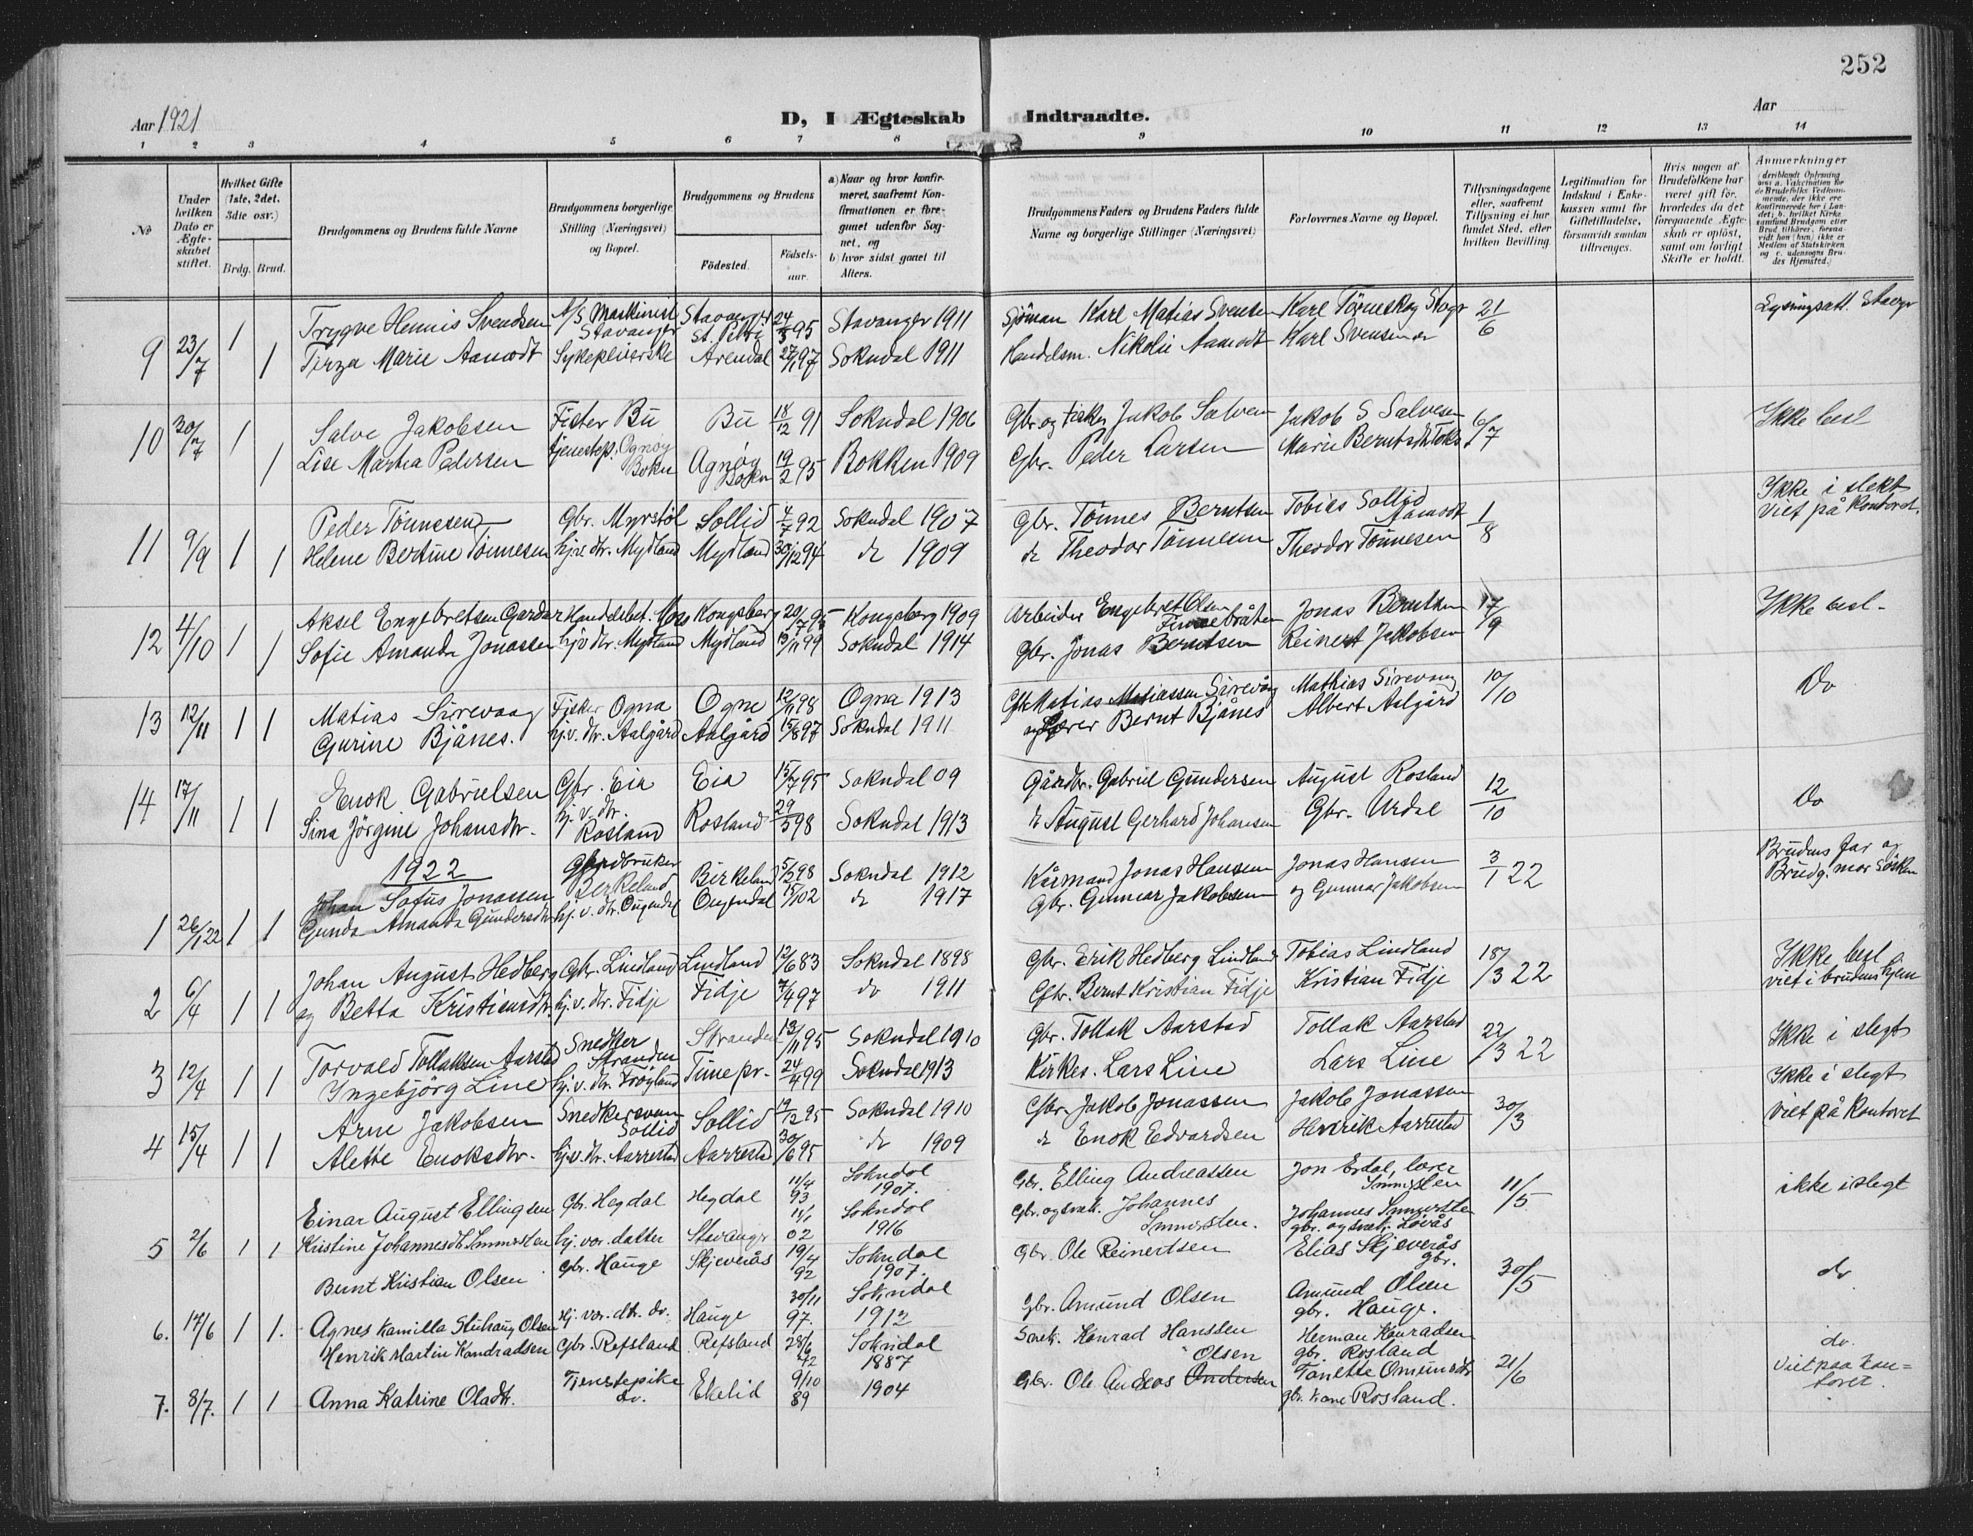 252
Aar 1921
D, I Ægteskab Indtraadte.
Aar
1 2 3 4 5 6 7 8 9 10 11 12 13 14
No
Under hvilken Dato er Ægteskabet stiftet.
Hvilket Gifte (1ste, 2det, 3die osv.)
Brdg. Brud.
Brudgommens og Brudens fulde Navne
Brudgommens borgerlige Stilling (Næringsvei) og Bopæl.
Brudgommens og Brudens
Födested. Födselsaar.
a) Naar og hvor konfirmeret, saafremt Konfirmationen er foregaaet udenfor Sognet, og
b) hvor sidst gaaet til Alters.
Brudgommens Faders og Brudens Faders fulde Navne og borgerlige Stillinger (Næringsvei)
Forlovernes Navne og Bopæl.
Tillysningsdagene eller, saafremt Tillysning ei har fundet Sted, efter hvilken Bevilling.
Legitimation for Indskud i Enkekassen samt for Giftetilladelse, forsaavidt saadan tiltrænges.
Hvis nogen af Brudefolkene har været gift för, hvorledes da det foregaaende Ægteskab er oplöst, samt om lovligt Skifte er holdt.
Anmærkninger
9 23/7 1 Trygve Hennis Svendsen Maskinist Stavanger Stavanger St. Petri 95 Stavanger 1911 Sjöman Karl Matias Svensen Karl Tönneskog Stvgr 21/6 Lysningsatt. Stavgr
1 Tirza Marie Aamodt Sykepleierske Arendal 97 Sokndal 1911 Handelsm. Nikolai Aamodt Karl Svensen
10 30/7 1 Salve Jakobsen Fisker Bu Bu 18/12 91 Sokndal 1906 Gbr og fisker Jakob Salvesen Jakob S Salvesen 6/7 Ikke besl
1 Lise Martha Pedersen tjenestep. Ognøy Bokn Agnøy Bokn 19/2 95 Bokken 1909 Gbr. Peder Larsen Marie Berntsdtr
11 9/9 1 Peder Tönnesen Gbr. Myrstöl Sollid 4/7 92 Sokndal 1907 Gbr. Tönnes Berntsen Tobias Sollid Aamodt 1/8 Ikke i slekt viet på Kontoret.
1 Helene Bertine Tönnesen hj.v. dtr. Mydland Mydland 30/12 94 do 1909 do Theodor Tönnesen Theodor Tönnesen
12 4/10 1 Aksel Engebretsen Garder Handelsbet. Moss Kongsberg 20/7 95 Kongsberg 1909 Arbeider Engebret Olsen Finnebråten Jonas Berntsen 17/9 Ikke besl.
1 Sofie Amanda Jonassen hjv dtr. Mydland Mydland 13/11 99 Sokndal 1914 Gbr. Jonas Berntsen Reinert Jakobsen
13 12/11 1 Matias Sirevaag Fisker Ogna Ogne 12/11 98 Ogna 1913 Gbr Matias Matiassen Sirevåg Mathias Sirevaag 10/10 Do
1 Gurine Bjånes. hj.v. dtr. Aalgård Aalgård 15/8 97 Sokndal 1911 Lærer Bernt Bjånes Albert Aalgård
14 17/11 1 Enok Gabrielsen Gbr. Eia Eia 15/7 95 Sokndal 09 Gårdbr. Gabriel Gundersen August Rosland 12/10 Do
1 Sina Jörgine Johansdtr. hj.v. dtr. Rosland Rosland 29/5 98 Sokndal 1913 do August Gerhard Johansen Gbr. Urdal
1922
1 26/1 22 1 Johan Sofus Jonassen Gårdbruker Birkeland Birkeland 5/2 98 Sokndal 1912 Kårmand Jonas Hansen Jonas Hansen 3/1 22 Brudens far og Brudg. mor Sösken
1 Gunda Amanda Gundersdtr hj.v. dtr. Ougendal Ougendal 02 do 1917 Gbr. Gunnar Jakobsen og Gunnar Jakobsen
2 6/4 1 Johan August Hedberg Gbr. Lindland Lindland 12/6 83 Sokndal 1898 Gbr. Erik Hedberg Lindland Tobias Lindland 18/3 22 Ikke besl viet i brudens hjem
1 og Betta Kristiansdtr. hj.v. dtr. Fidje Fidje 7/4 97 do 1911 Gbr. Bernt Kristian Fidje Kristian Fidje
3 12/4 1 Torvald Tollaksen Aarstad Snedker Stranden Stranden 13/11 95 Sokndal 1910 Gbr. Tollak Aarstad Tollak Aarstad 22/3 22 Ikke i slegt
1 Ingebjörg Line hj.v. dtr. Fröyland Time pr. 24/4 99 Sokndal 1913 Kirkes. Lars Line Lars Line
4 15/4 1 Arne Jakobsen Snedkersvenn Sollid Sollid 19/12 95 Sokndal 1910 Gbr. Jakob Jonassen Jakob Jonassen 30/3 Ikke i slegt viet på Kontoret
1 Alette Enoksdtr. hj.v. dtr. Aarrestad Aarrestad 30/6 95 do 1909 do Enok Edvardsen Henrik Aarrestad
5 2/6 1 Einar August Ellingsen Gbr. Hegdal Hegdal 11/4 93 Sokndal 1907. Gbr. Elling Andreassen Jon Erdal, lærer 11/5 ikke i slegt
1 Kristine Johannesdtr. Immersten hj. vær. datter Stavangr 11/1 02 Sokndal 1916 Gbr. og snek. Johannes Immersten. Johannes Immersten gbr. og snek. Lövås
6. 17/6 1 Bernt Kristian Olsen gbr. Hauge Skjeverås 19/4 92 Sokndal 1907. Gbr. Ole Reinertsen Elias Skjeverås gbr. 30/5 do
1. Agnes Kamilla Stuhaug Olsen Hj. vær. dtr. do. Hauge 30/11 97. Sokndal 1912 Gbr. Amund Olsen Amund Olsen gbr. Hauge.
7. 8/7. 1 Henrik Martin Kondradsen Gbr. Refsland Refsland 28/6 72 Sokndal 1887 Snek. Konrad Hanssen Olsen Herman Konradsen gbr. Rosland 21/6 do. Viet paa kontoret.
1 Anna Katrine Olsdtr. Tjenstepike do. Ekelid 9/10 89 1904 Gbr. Ole Andreas Andersen Tanette Omundsdtr gbr. kone Rosland.